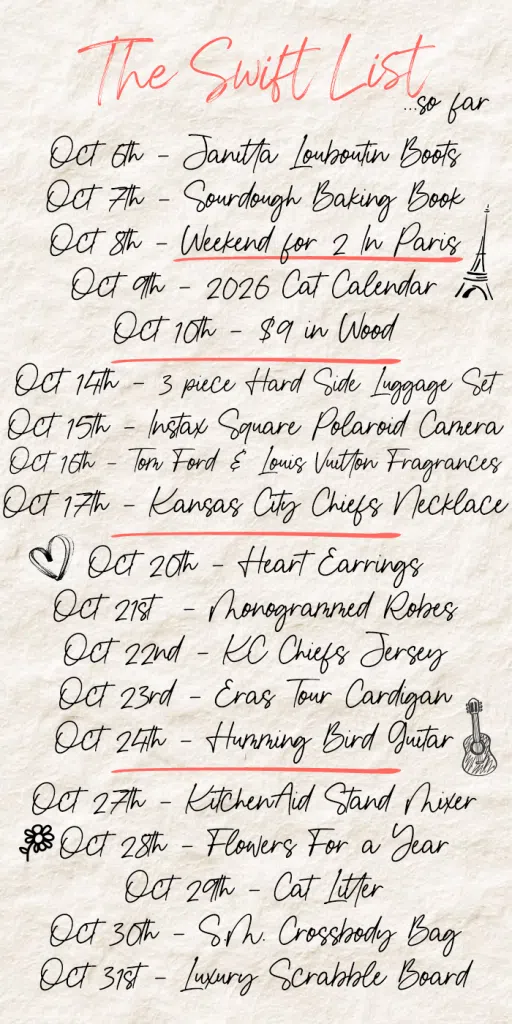 The Swift List
...so far
Oct 6th - Janitta Louboutin Boots
Oct 7th - Sourdough Baking Book
Oct 8th - Weekend for 2 In Paris
Oct 9th - 2026 Cat Calendar
Oct 10th - $9 in Wood
Oct 14th - 3 piece Hard Side Luggage Set
Oct 15th - Instax Square Polaroid Camera
Oct 16th - Tom Ford & Louis Vuitton Fragrances
Oct 17th - Kansas City Chiefs Necklace
Oct 20th - Heart Earrings
Oct 21st - Monogrammed Robes
Oct 22nd - KC Chiefs Jersey
Oct 23rd - Eras Tour Cardigan
Oct 24th - Humming Bird Guitar
Oct 27th - KitchenAid Stand Mixer
Oct 28th - Flowers For a Year
Oct 29th - Cat Litter
Oct 30th - S.M. Crossbody Bag
Oct 31st - Luxury Scrabble Board